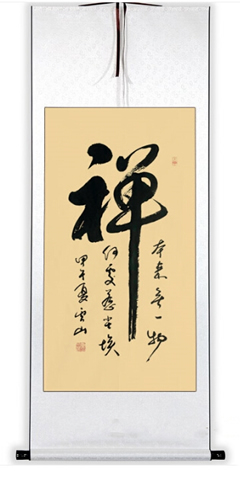 禅
本来无一物
何处惹尘埃
甲午夏云山